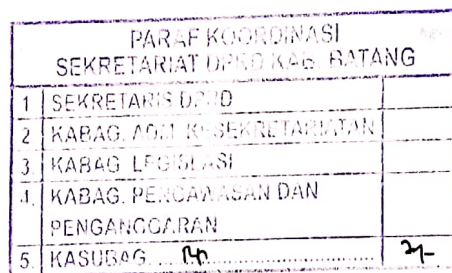 PARAF KOORDINASI
SEKRETARIAT DPRD KAB. BATANG
1 SEKRETARIS DPRD
2 KABAG. ADM. KESEKRETARIATAN
3. KABAG. LEGISLASI
4. KABAG. PENGAWASAN DAN
PENGANGGARAN
5. KASUBAG.